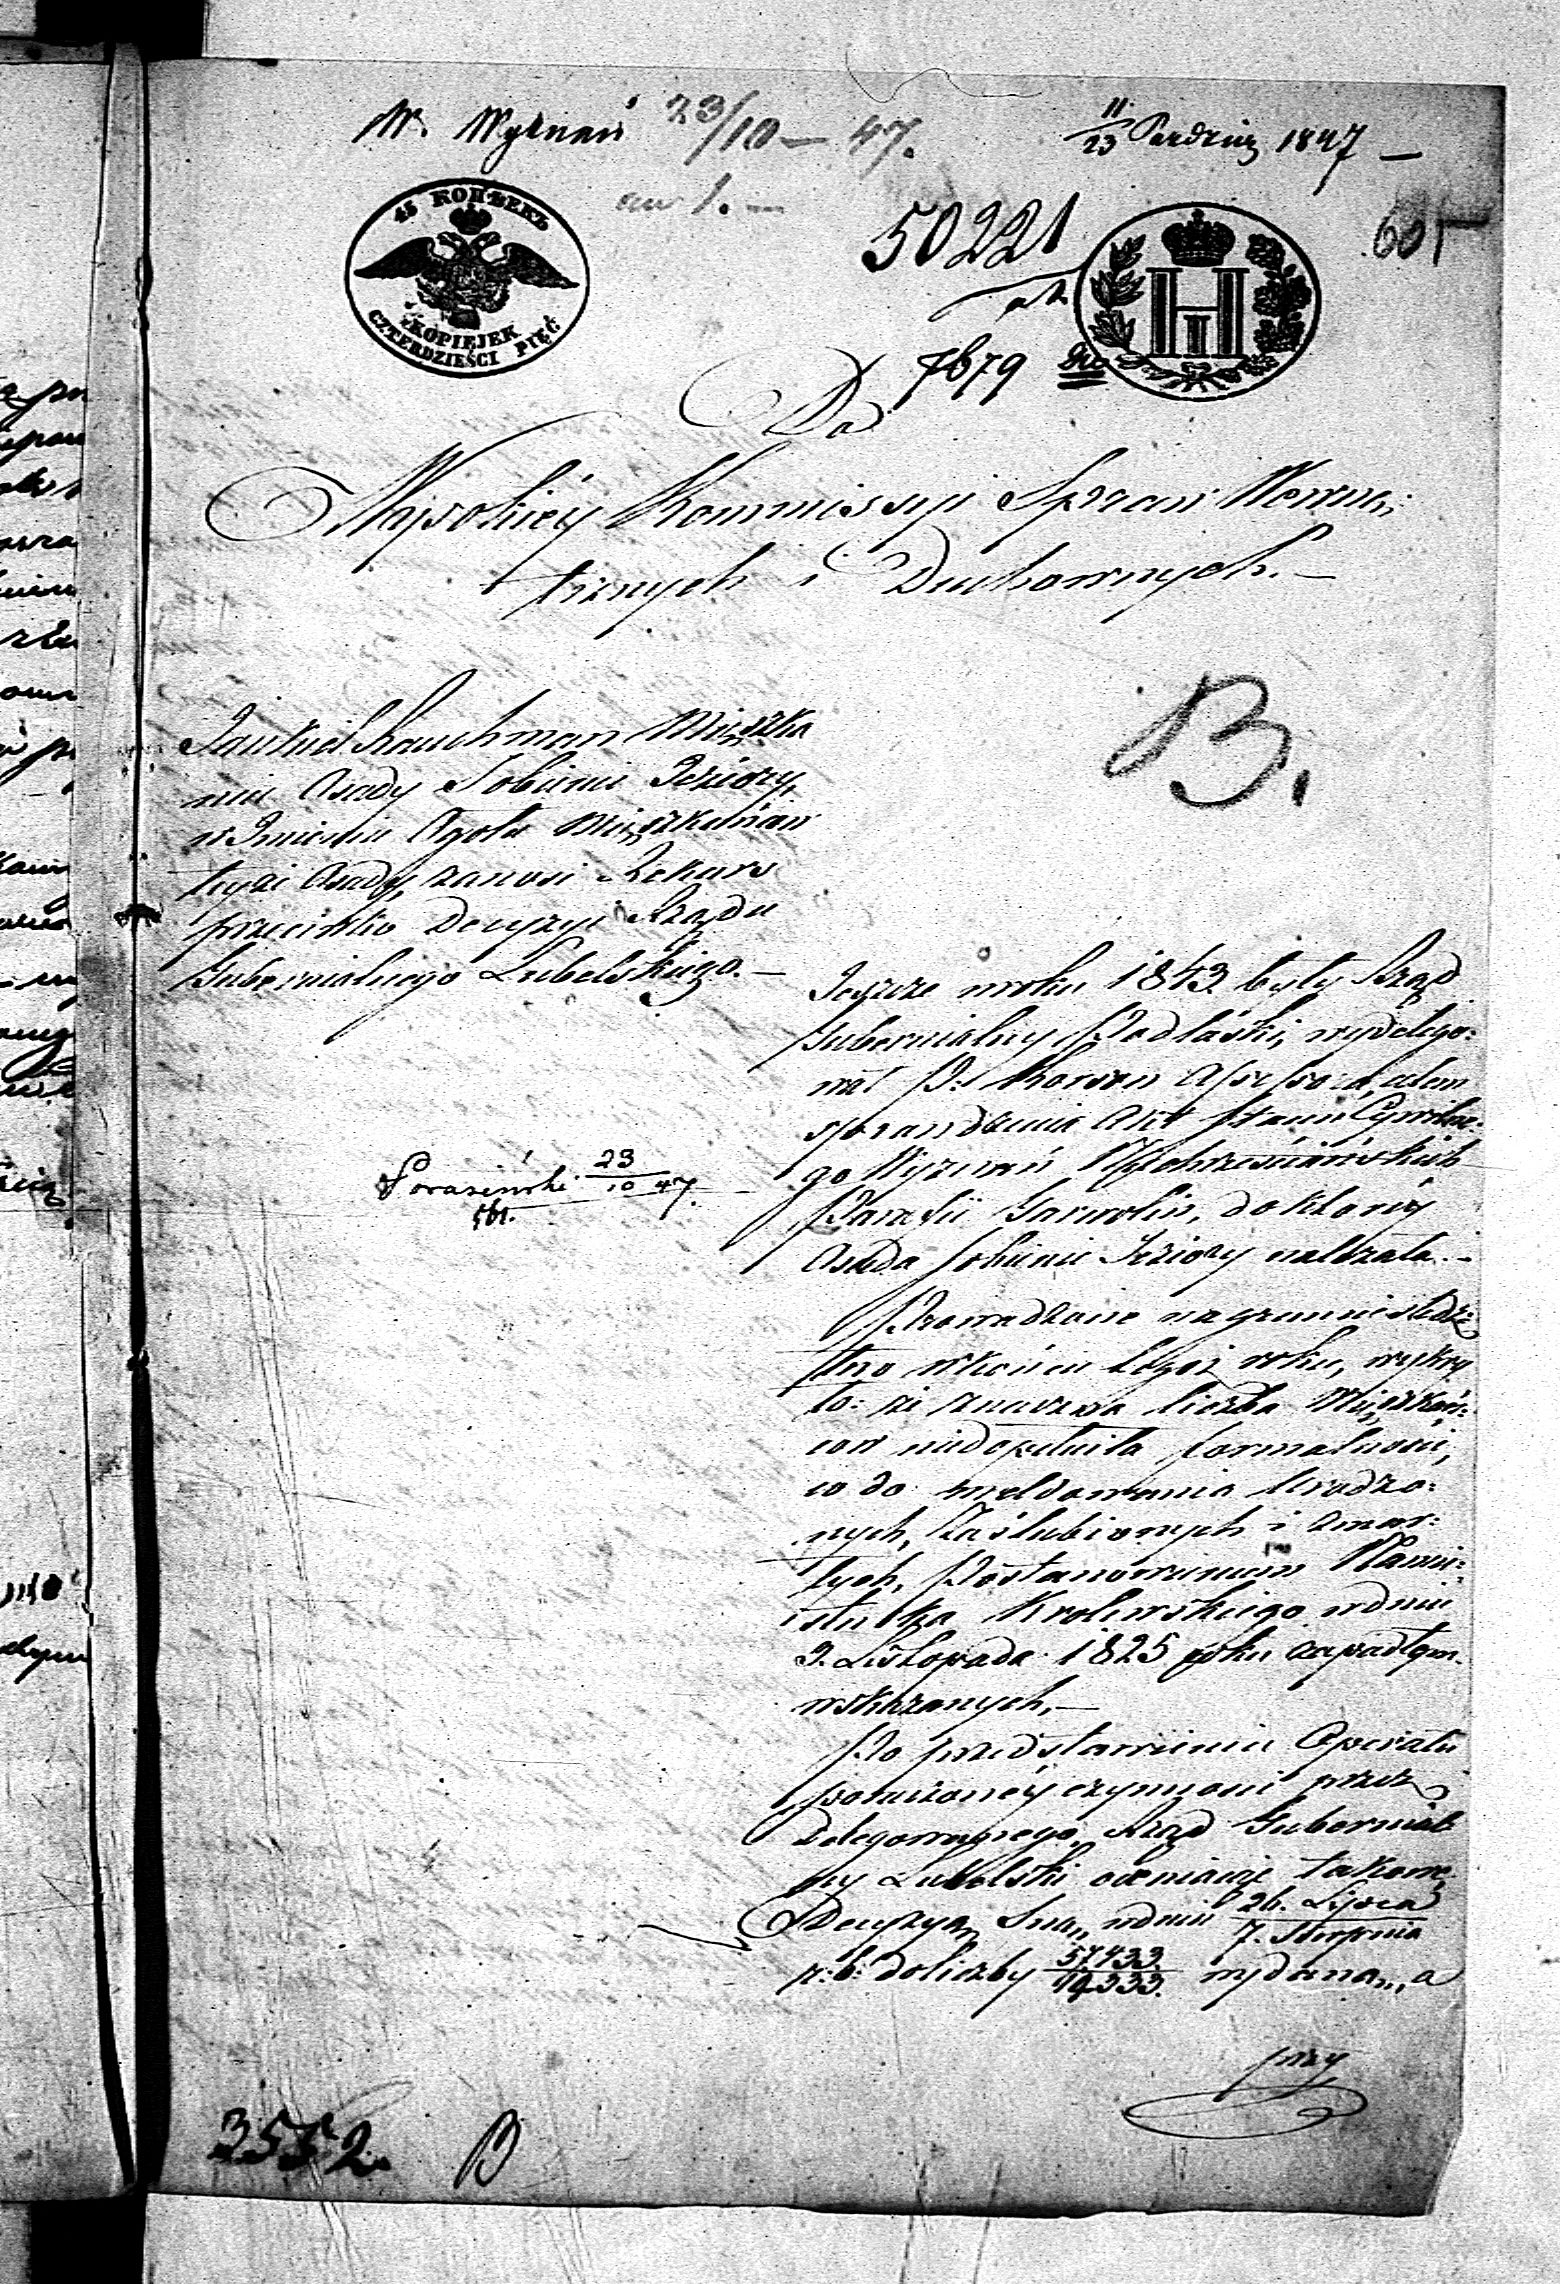 W. Wyznań 23/10 — 47.
11/23 Paździer 1847 —
45 КОПѢЕКЪ
KOPIEJEK
CZTERDZIEŚCI PIĘĆ
50221
605
7679
Do
Wysokiéy Kommissyi Spraw Wewnę:
trznych i Duchownych. —
B.
Jankiel Rauchman Mieszka
niec Osady Sobienie Jeziory,
w Imieniu Ogołu Mieszkańców
teyże Osady, zanosi Rekurs
przeciwko Decyzyi Rządu
Gubernialnego Lubelskiego. —
23/10 47.
Jeszcze w roku 1843. były Rząd
Gubernialny Podlaski, wydelego:
wał P. Korsen Assessora, celem
sprawdzenia Akt Stanu Cywilne:
go Wyznań Niechrześciańskich
Parafii Garwolin, do któréy
Osada Sobienie Jeziory należała. —
Prowadzone na gruncie śledz:
two w końcu tegoż roku, wykry
to: że znaczna liczba Mieszkań:
ców niedopełniła formalności,
co do meldowania Urodzo:
nych, Zaślubionych i Zmar:
łych, Postanowieniem Namie:
stnika Krolewskiego w dniu
3. Listopada 1825 roku zapadłym
wskazanych, —
Po przedstawieniu Operatu
poruczonéy czynności przez
Delegowanego, Rząd Gubernial
ny Lubelski oceniając takowe,
Decyzyą Swą, w dniu 26. Lipca / 7. Sierpnia
r: b: do liczby 57433. / 14333. wydaną, a
przy
3552. B